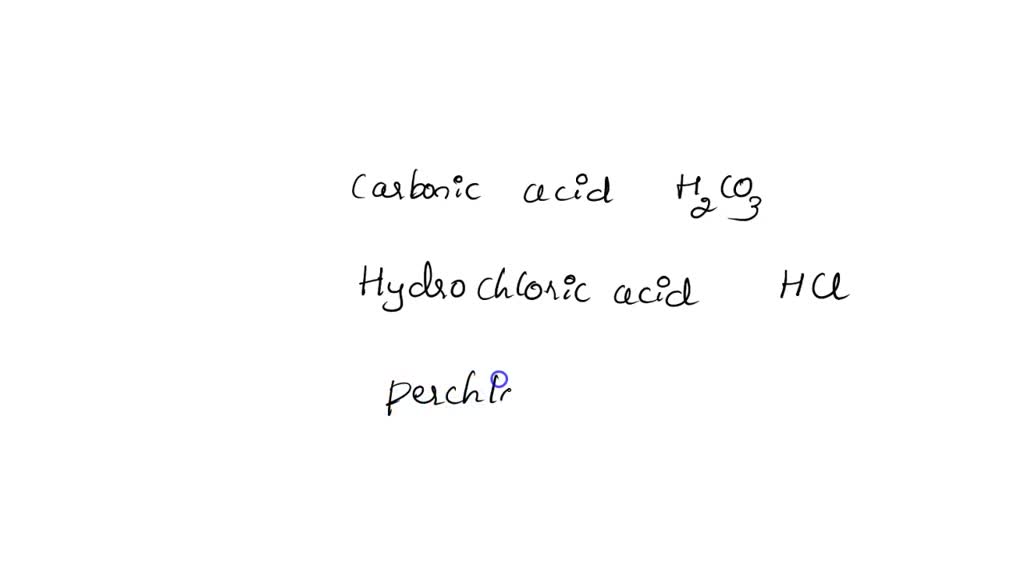 Carbonic acid H₂CO₃
Hydrochloric acid HCl
perchl